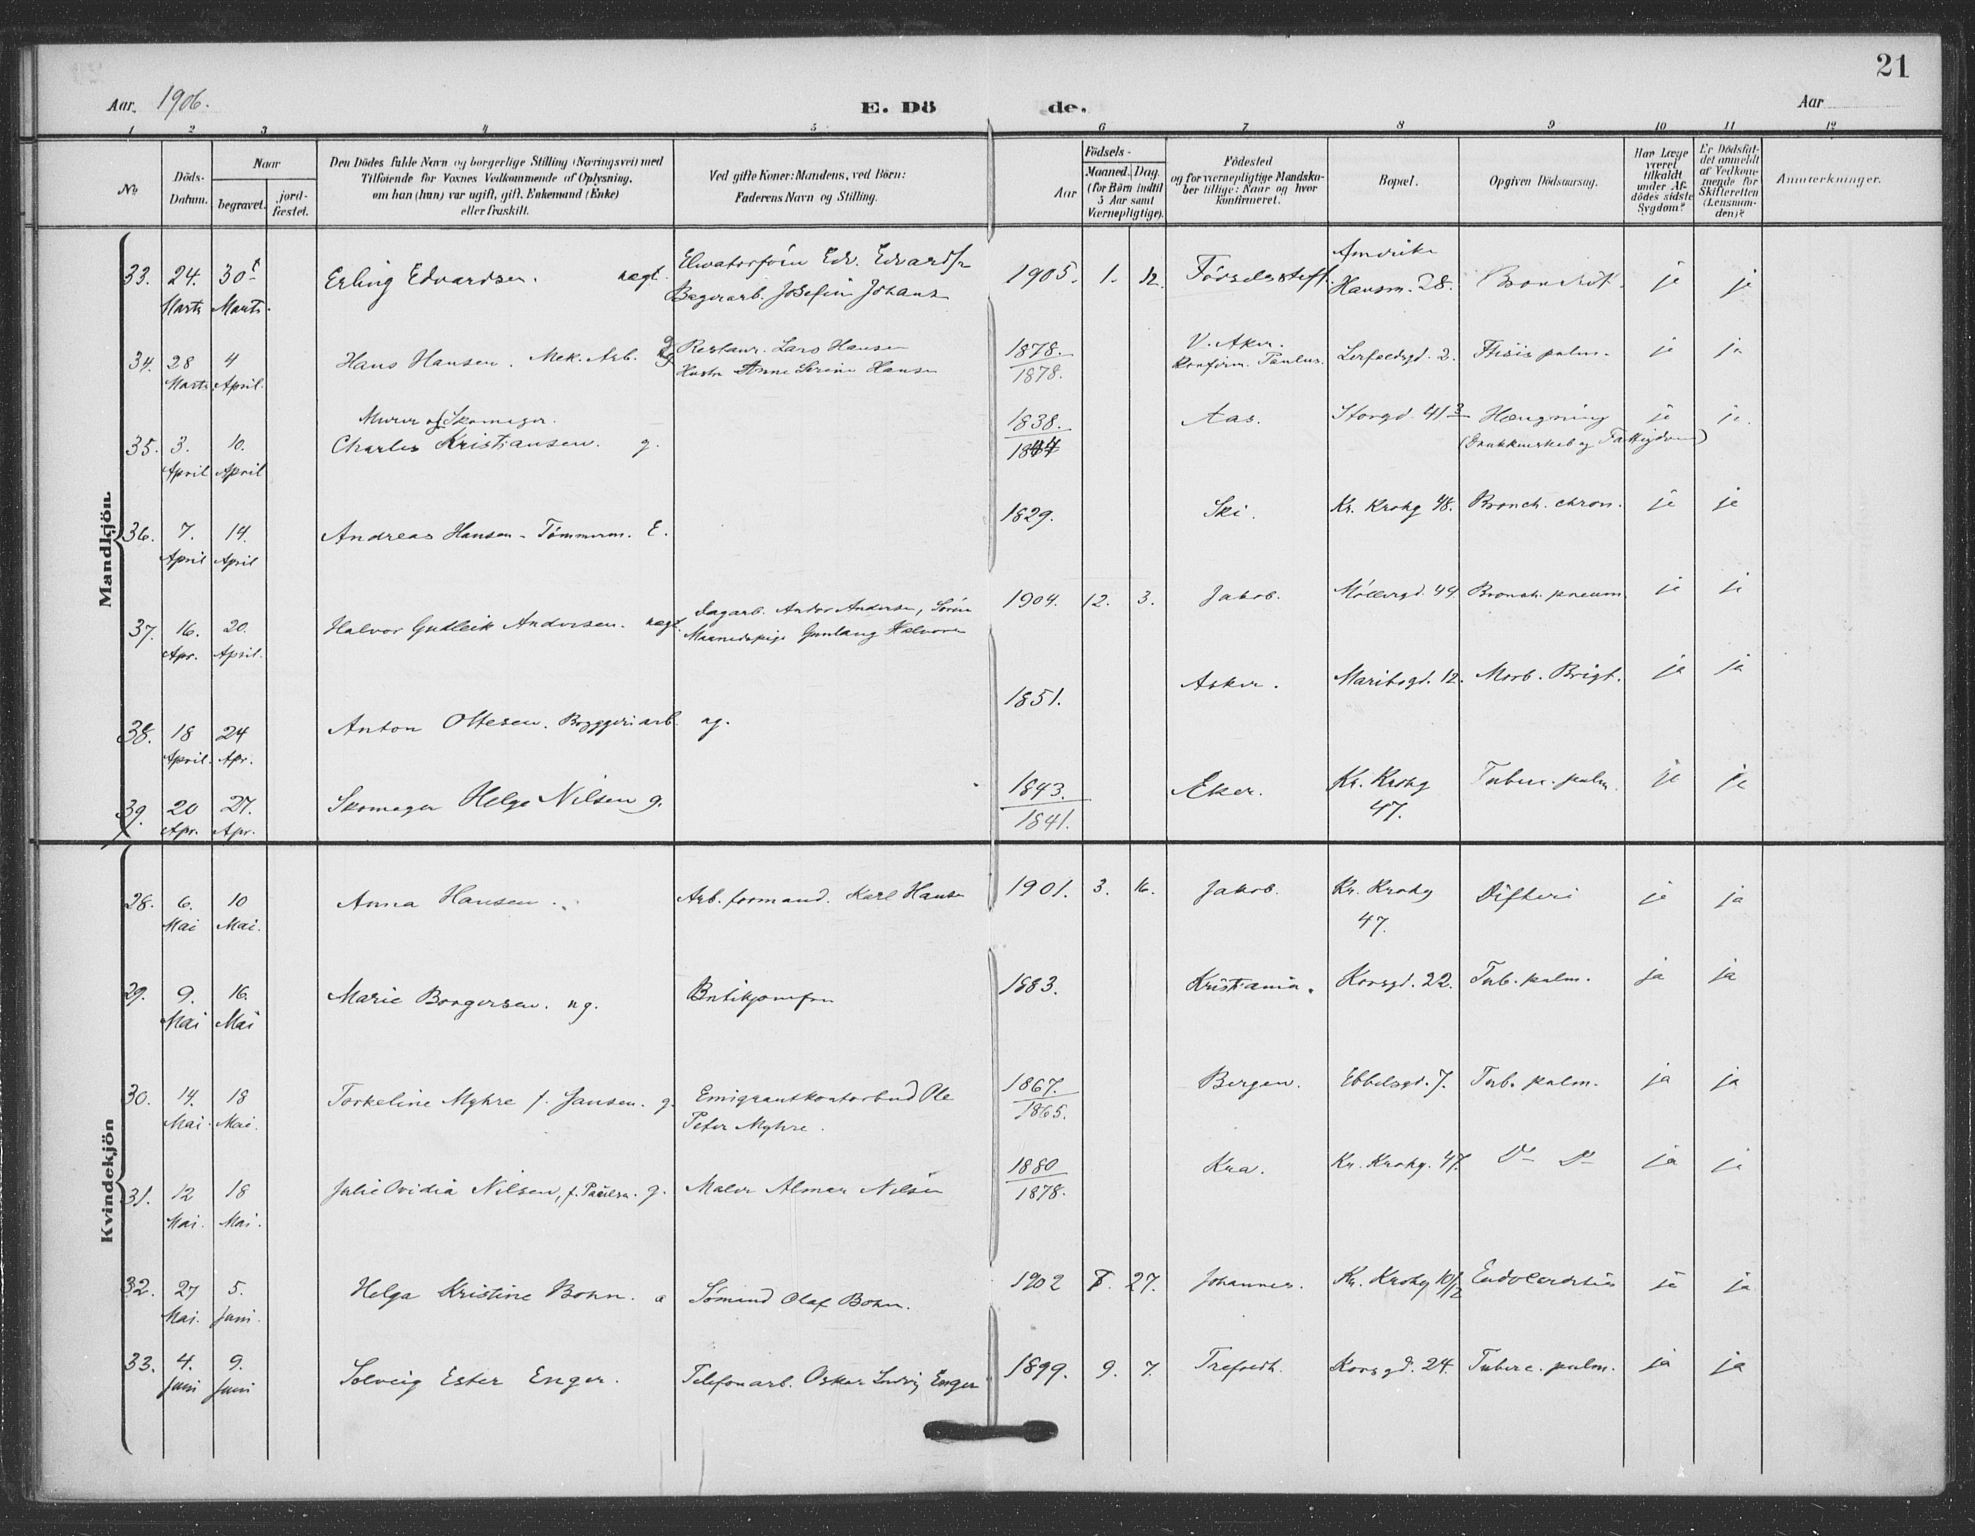 21
Aar. 1906.
E. Dö de.
Aar
1 2 3 4 5 6 7 8 9 10 11 12
No
Döds-Datum.
Naar
begravet.
jord-fæstet.
Den Dödes fulde Navn og borgerlige Stilling (Næringsvei) med
Tilföiende for Voxnes Vedkommende af Oplysning,
om han (hun) var ugift, gift, Enkemand (Enke)
eller fraskilt.
Ved gifte Koner: Mandens, ved Börn:
Faderens Navn og Stilling.
Födsels-
Aar
Maaned. Dag.
(for Börn indtil
5 Aar samt
Værnepligtige).
Födested
og for værnepligtige Mandska-
ber tillige: Naar og hvor
konfirmeret.
Bopæl.
Opgiven Dödsaarsag.
Har Læge
været
tilkaldt
under Af-
dödes sidste
Sygdom?
Er Dödsfal-
det anmeldt
af Vedkom-
mende for
Skifteretten
(Lensman-
den)?
Anmærkninger.
Mandkjön.
33. 24. Marts 30 Marts. Erling Edvardsen. uægt. Edv. Edvards Josefin Johans 1905. 1. 12. Födselsstift. Hausm. 28. Bronchit. ja ja
34. 28 Marts 4 April. Hans Hansen. Mek. Arb. Restaur. Lars Hansen Hustr Anne Serine Hansen 1878. 1878. V. Aker. Konfirm. Paulus. 2. Ftisis pulm. ja ja
35. 3. April 10. April Murer og Skomager. Charles Kristiansen. g. 1838. 1844 Aas. Storgd. 41 Hængning (Drukkenskab og Fattigdom) ja ja.
36. 7. April 14. April Andreas Hansen - Tømmerm. E. 1829. Ski. Kr. Krohg 48. Bronch. chron. ja ja
37. 16. Apr. 20. April. Halvor Gudleik Andersen. uægt. Dagarb. Andor Andersen, Gunlaug Halvors 1904. 12. 3. Jakob. Møllergd. 44. Bronch. pneum. ja ja
38. 18 April. 24 Apr. Anton Ottesen. Bryggeriarb. ug. 1851. Asker. Maribogd. 12. Morb. Brigt. ja ja
39. 20 Apr. 27. Apr. Skomager Helge Nilsen g. 1843. 1841. Eker. Kr. Krohg 47. Tuberc. pulm. ja ja
Kvindekjön
28. 6. Mai 10 Mai. Anna Hansen. Arb. formand. Karl Hansen 1901. 3. 16. Jakob. Kr. Krohg 47. Difteri ja ja
29. 9. Mai 16. Mai Marie Borgersen. ug. Butikjomfru 1883. Kristiania. Korsgd. 22. Tub. pulm. ja ja
30. 14. Mai. 18 Mai. Torkeline Myhre f. Jansen. g. Emigrantkontorbud Ole Peter Myhre. 1867. 1865. Bergen. Ebbelsgd. 7. Tub. pulm. ja ja
31. 12 Mai. 18 Mai. Julie Ovidia Nilsen, f. Paulsen. g. Maler Almar Nilsen 1880 1878. Kra. Kr. Krohg. 47. Do Do ja ja
32. 27 Mai. 5. Juni. Helga Kristine Bohn. a Sømand Olaf Bohn. 1902 27. Johannes. Kr. Krohg 10/12 Endocarditis ja ja
33. 4. Juni 9. Juni Solveig Ester Enger. Telefonarb. Oskar Ludvig Enger 1899. 9. 7. Trefoldh. Korsgd. 24. Tuberc. pulm. ja ja